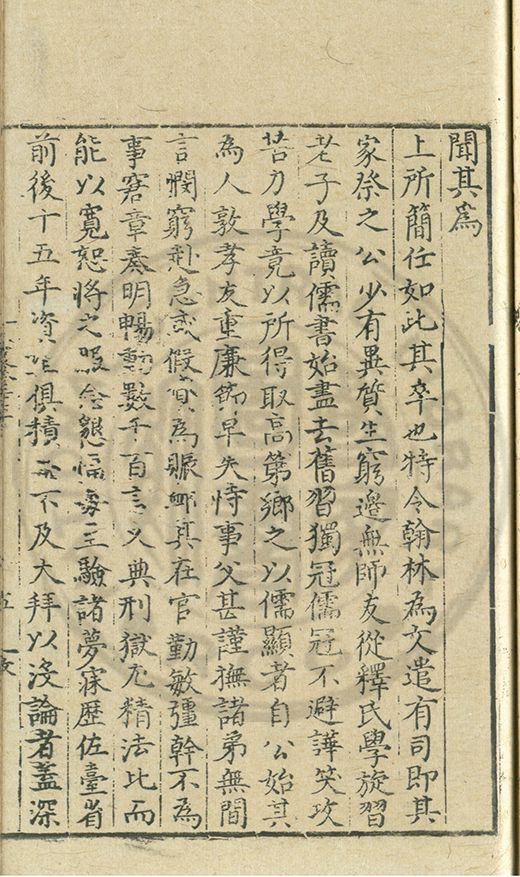 聞其為
上所簡任如此其卒也特令翰林為文遣有司即其
家祭之公少有異質生窮邊無師友從釋氏學旋習
老子及讀儒書始盡去舊習獨冠儒冠不避譁笑攻
苦力學竟以所得取高第鄉之以儒顯者自公始其
為人敦孝友重廉節早失恃事父甚謹撫諸弟無間
言憫窮赴急或假貸為賑卹其在官勤敏彊幹不為
事窘章奏明暢動數千百言又典刑獄尤精法比而
能以寬恕將之眾念懇惻每三驗諸夢寐歷佐臺省
前後十五年資俱積而不及大拜以沒論者蓋深